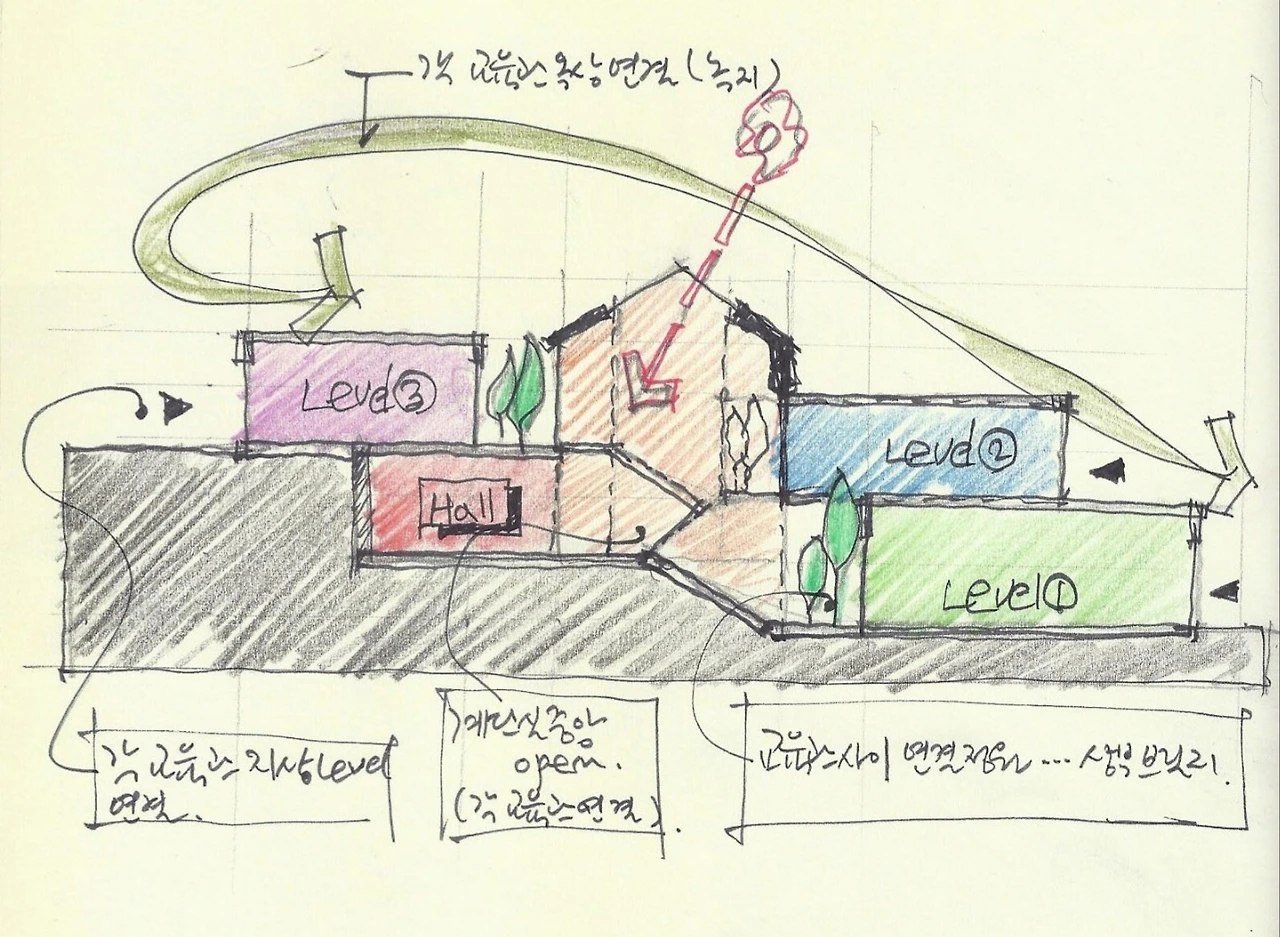 각 교육관 옥상 연결 (녹지)
Level③
Level②
Hall
Level①
각 교육관 지상Level
연결.
계단실 중앙
open.
(각 교육관 연결).
교육관 사이 연결정원 ...